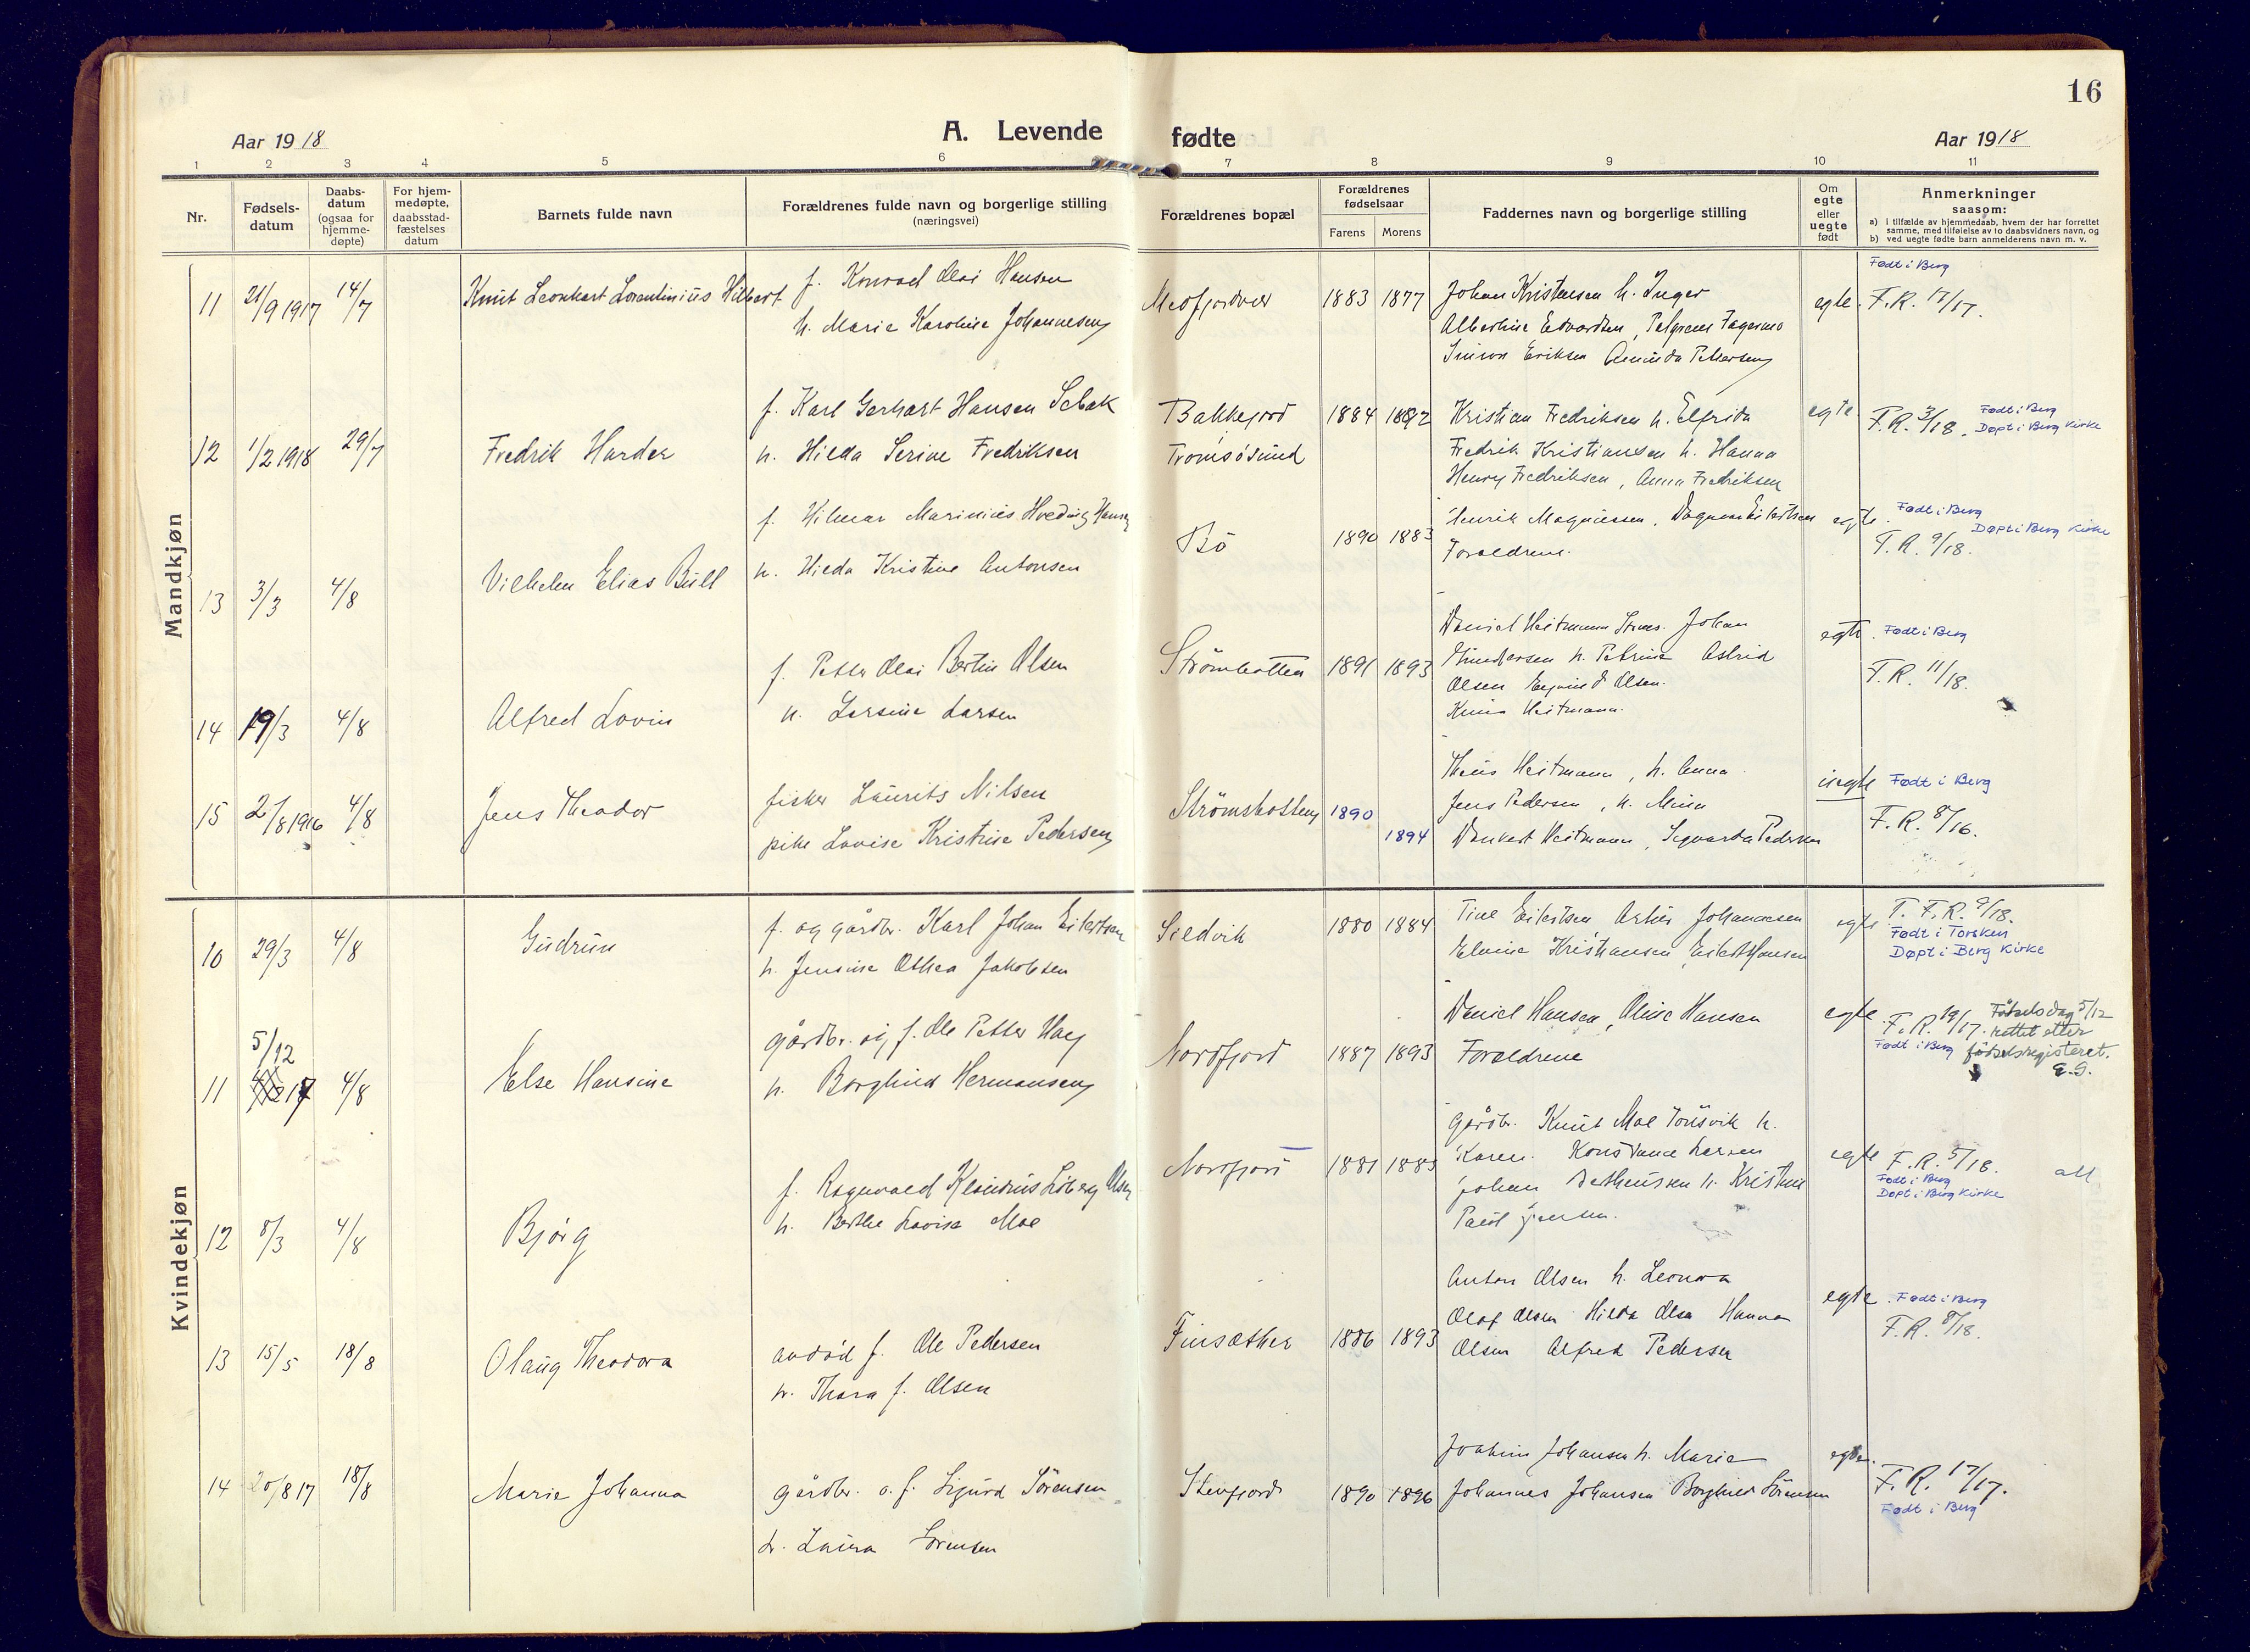 16
Aar 1918
A. Levende fødte
Aar 1918
1 2 3 4 5 6 7 8 9 10 11
Nr.
Fødsels-datum
Daabs-datum (ogsaa for hjemme-døpte)
For hjem-medøpte, daabsstad-fæstelses datum
Barnets fulde navn
Forældrenes fulde navn og borgerlige stilling
(næringsvei)
Forældrenes bopæl
Forældrenes fødselsaar
Farens Morens
Faddernes navn og borgerlige stilling
Om egte eller uegte født
Anmerkninger
saasom:
a) i tilfælde av hjemmedaab, hvem der har forrettet
samme, med tilføielse av to daabsvidners navn, og
b) ved uegte fødte barn anmelderens navn m. v.
Mandkjøn
11 21/9 1917 14/7 Knut Leonhart Lorentinius Hilbert
f. Konrad Olai Hansen
h. Marie Karoline Johannesen
Medfjordvær 1883 1877
Johan Kristensen h. Inger
Albertine Edvardsen, Fagermo
Simon Eriksen Aminda Pettersen
egte. F.R. 17/17.
Født i Berg
12 1/2 1918 29/7 Fredrik Harder
f. Karl Gerhart Hansen Sebak
h. Hilda Serine Fredriksen
Bakkejord
Tromsøsund
1884 1892
Kristian Fredriksen h. Elfrida
Fredrik Kristiansen h. Hanna
Henry Fredriksen, Anna Fredriksen
egte F.R. 3/18.
Født i Berg
Døpt i Berg Kirke
13 3/3 4/8 Vilhelm Elias Bull
f. Hilmar Marinius Hveding Hansen
h. Hilda Kristine Antonsen
Bö 1890 1883
Henrik Magnussen, Dagmar Eilertsen
Forældrene.
egte.
Født i Berg
Døpt i Berg Kirke
F.R. 9/18.
14 19/3 4/8 Alfred Lovin
f. Petter Olai Bertin Olsen
h. Larsine Larsen
Strömbotten 1891 1893
Daniel Heitmann Johan
h. Petrine Astrid
Olsen Eyvind Olsen.
Heitmann.
egte. Født i Berg
F.R. 11/18.
15 2/8 1916 4/8 Jens Theodor
fisker Laurits Nilsen
pike Lovise Kristine Pedersen
Strömsbotten 1890
1894
Heitmann, h. Anna
Jens Pedersen, h. Mina
Heitmann, Sigvarda Pedersen
uegte Født i Berg
F.R. 8/16.
Kvindekjøn
10 29/3 4/8 Gudrun
f. og gårdbr. Karl Johan Eilertsen
h. Jensine Othea Jakobsen
Sildvik 1880 1884
Eilertsen Johannesen
Kristiansen, Eilert Hansen
egte T. F.R. 9/18.
Født i Torsken
Døpt i Berg Kirke
11 5/12 17 4/8 Else Hansine
gårdbr. og f. Ole Petter
h. Borghild Hermansen
Nordfjord 1887 1893
Daniel Hansen, Oline Hansen
Forældrene
egte F.R. 19/17.
Født i Berg
Fødselsdag 5/12
rettet etter
fødselsregisteret.
E.G.
12 8/3 4/8 Bjørg
f. Ragnvald Klaudius Olsen
h. Berthe Lovise Moe
Nordfjord 1881 1885
gårdbr. Knut Moe h.
Karen. Konstance Larsen
Johan h. Kristine
Paul Jensen.
egte F.R. 5/18. att
Født i Berg
Døpt i Berg Kirke
13 15/5 18/8 Olaug Theodora
avdöd f. Ole Pedersen
h. Thora f. Olsen
Finsæther 1886 1893
Anton Olsen h. Leonora
Olaf Olsen Hilda Olsen Hanna
Olsen Alfred Pedersen
egte. Født i Berg
F.R. 8/18.
14 20/8 17 18/8 Marie Johanna
gårdbr. o. f. Sigurd Sörensen
h. Laura Sörensen
Stenfjord 1890 1896
Joakim Johansen h. Marie
Johannes Johansen Borghild Sörensen
egte. F.R. 17/17.
Født i Berg